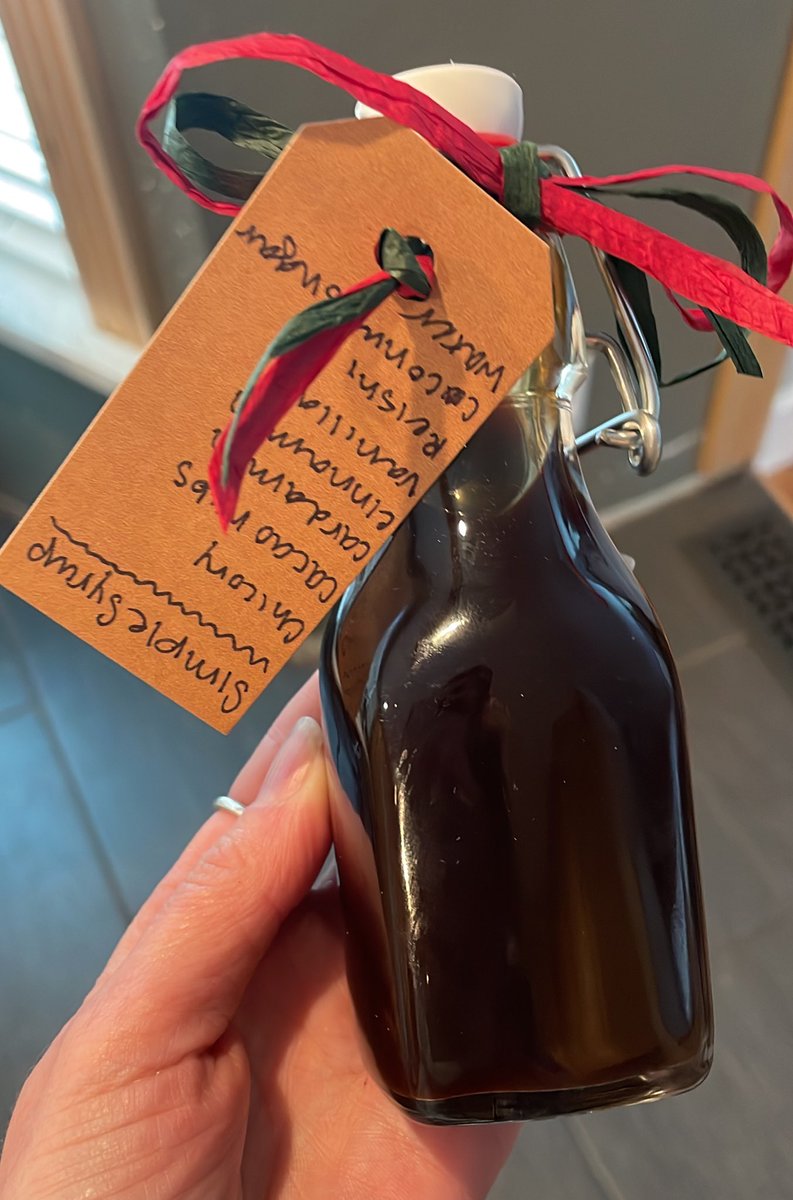 Simple Syrup
chicory
cacao nibs
cardam
cinnam
vanilla
Reishi
coconu sugar
water